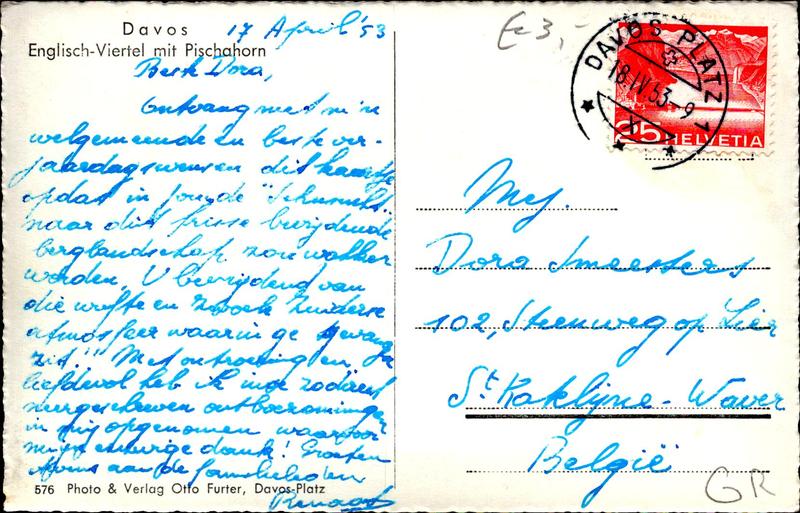 Davos
17 April '53
Englisch-Viertel mit Pischahorn
Beste Dora,
Ontvang met m'n
welgemeende en beste ver-
jaardagswensen dit kaartje
opdat in jou de "Sehnsucht"
naar dit frisse bevrijdende
berglandschap zou wakker
worden. U bevrijdend van
die wufte en zwoele
atmosfeer waarin ge gevangen
zit!! Met ontroering en
liefdevol heb ik
neergeschreven ontboezemingen
in mij opgenomen waarvoor
mijn eeuwige dank! Groeten
aan de familieleden
Renaat
576 Photo & Verlag Otto Furter, Davos-Platz
€ 3,-
DAVOS PLATZ 1
18.IV.53-9
25 HELVETIA
Mej.
Dora Smeesters
102, Steenweg op Lier
St. Katelijne-Waver
België
GR